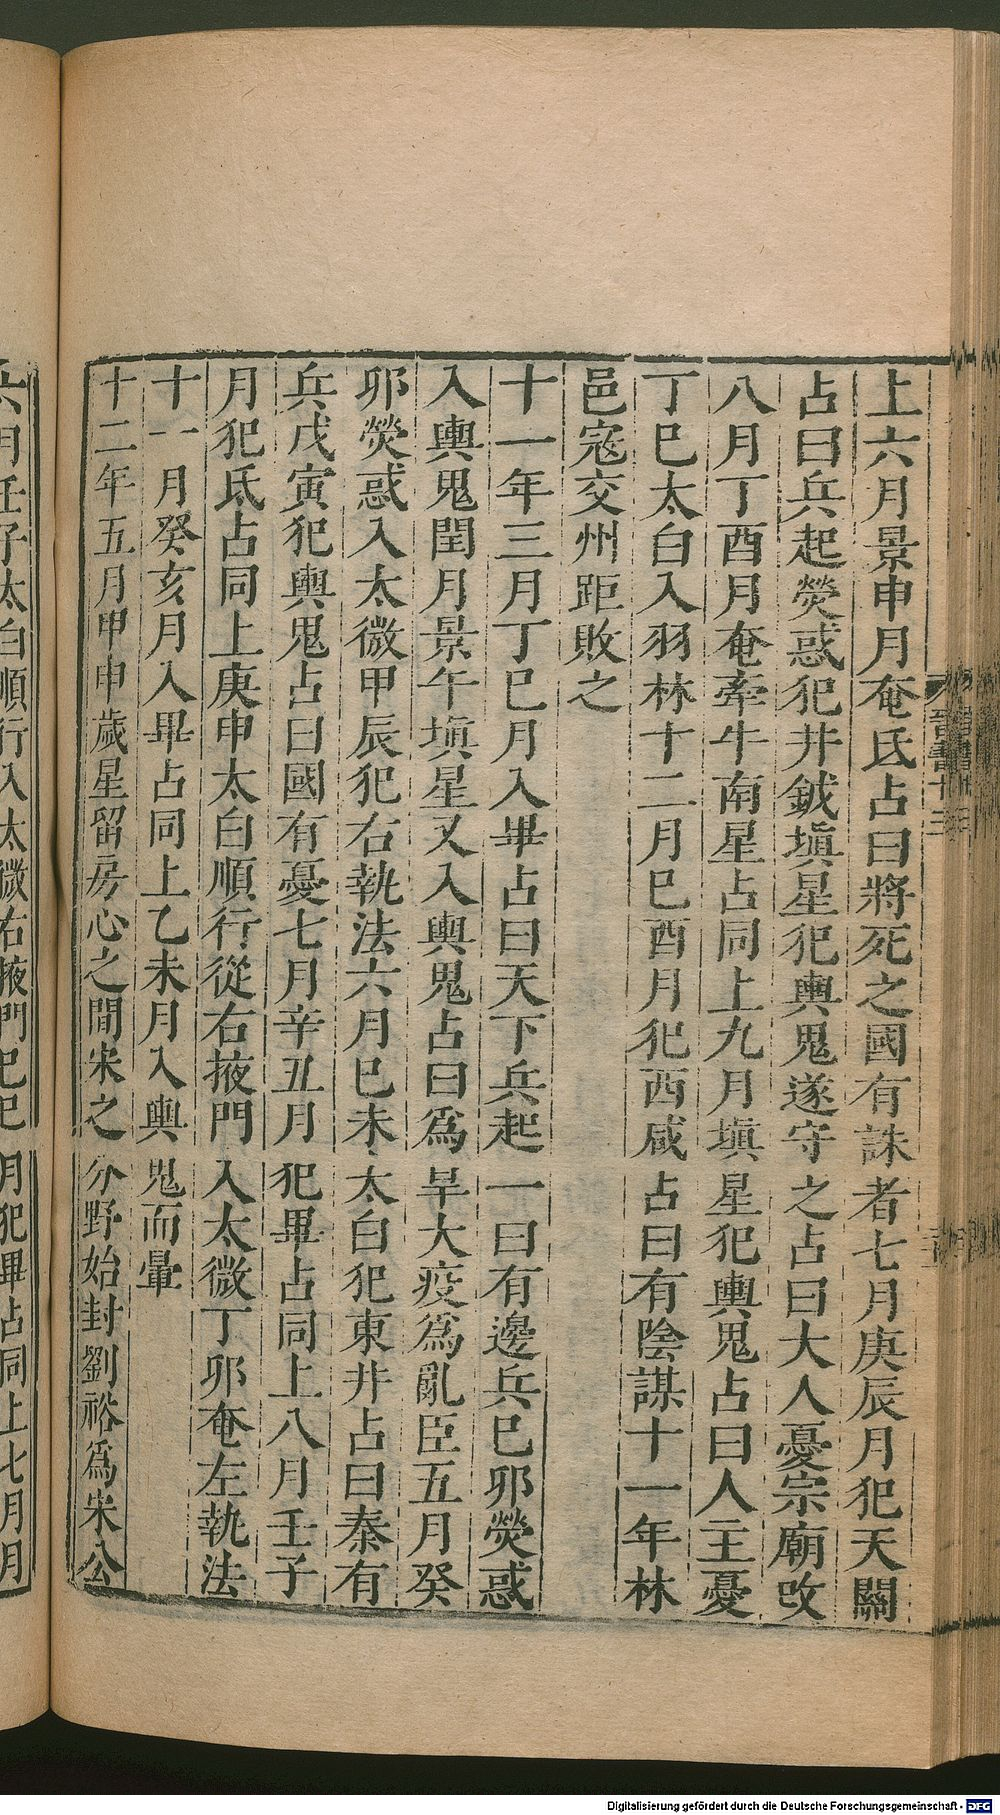 上六月景申月奄氐占曰將死之國有誅者七月庚辰月犯天關
占曰兵起熒惑犯井鉞塡星犯輿鬼遂守之占曰大人憂宗廟改
八月丁酉月奄牽牛南星占同上九月塡星犯輿鬼占曰人主憂
丁巳太白入羽林十二月巳酉月犯西咸占曰有陰謀十一年林
邑寇交州距敗之
十一年三月丁巳月入畢占曰天下兵起一曰有邊兵巳卯熒惑
入輿鬼閏月景午塡星又入輿鬼占曰爲旱大疫爲亂臣五月癸
卯熒惑入太微甲辰犯右執法六月巳未太白犯東井占曰秦有
兵戊寅犯輿鬼占曰國有憂七月辛丑月犯畢占同上八月壬子
月犯氐占同上庚申太白順行從右掖門入太微丁卯奄左執法
十一月癸亥月入畢占同上乙未月入輿鬼而暈
十二年五月甲申歲星留房心之間宋之分野始封劉裕爲宋公
六月壬子太白順行入太微右掖門巳巳月犯畢占同上七月月
晉書十三
Digitalisierung gefördert durch die Deutsche Forschungsgemeinschaft - DFG